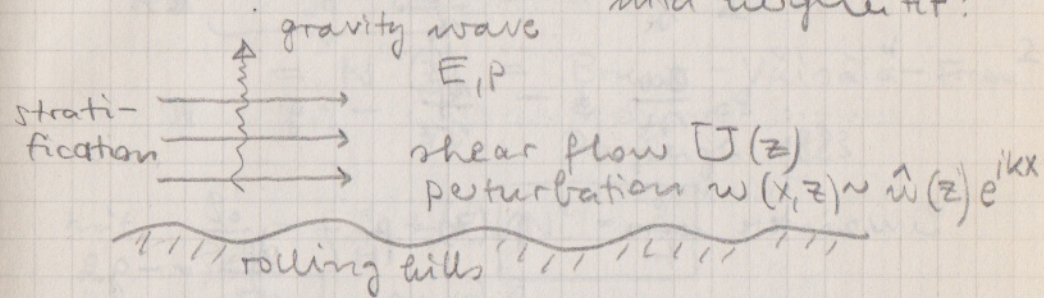 gravity wave
E, p
strati-
fication
shear flow U(z)
perturbation w(x,z)~ ŵ(z) e^ikx
rolling hills